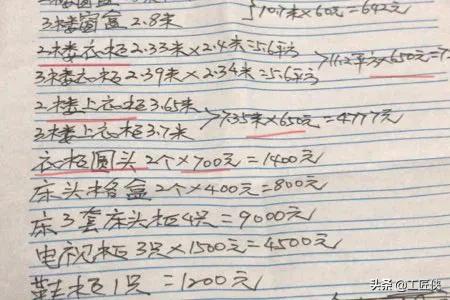 10.7米×60元=642元
3楼窗盒 2.8米
2楼衣柜 2.33米×2.4米=5.6平方
11.2平方×650元=7
3楼衣柜 2.39米×2.34米=5.6平方
2楼上衣柜 3.65米
7.35米×650元=4777元
3楼上衣柜 3.7米
衣柜圆头 2个×700元=1400元
床头箱盒 2个×400元=800元
床3套床头柜4只=9000元
电视柜 3只×1500元=4500元
鞋柜1只 =1200元
头条 @工匠侠